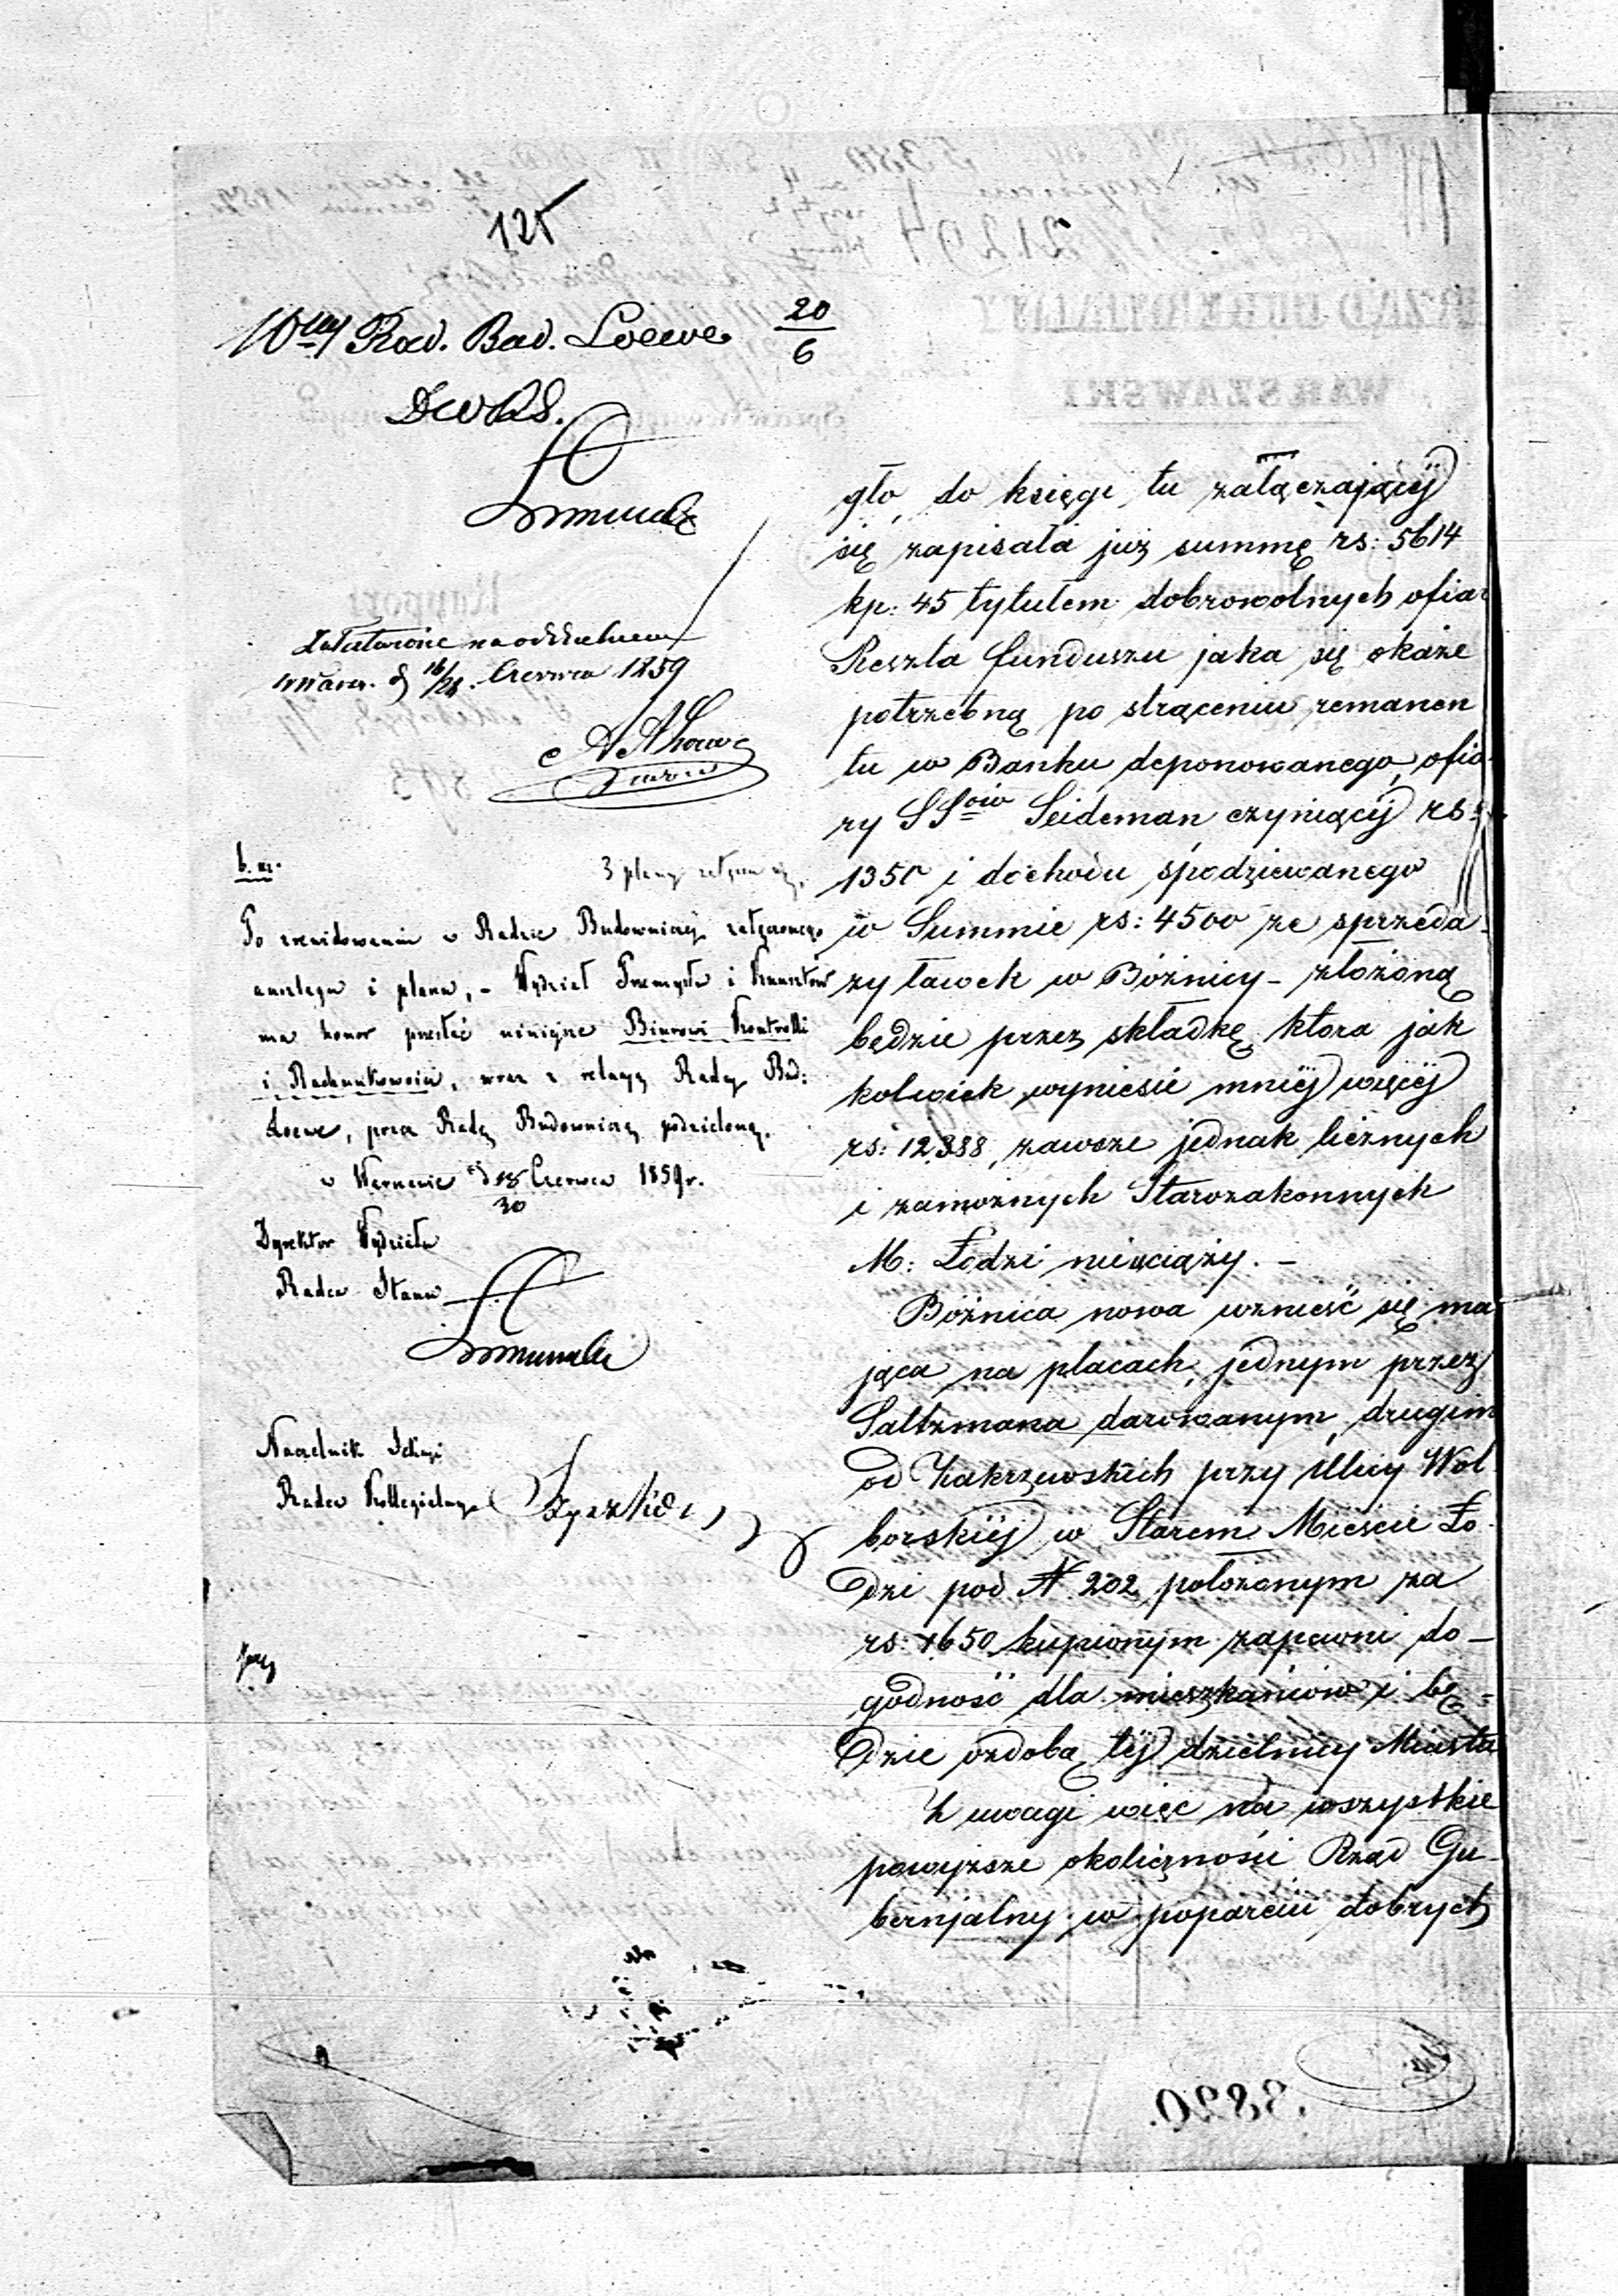 125
Wny Rad. Bud. Loewe 20/6
załatwione na oddzielnem
Warsz. d 16/28 Czerwca 1859
b. m.
3 plany załącza się.
Po zrewidowaniu w Radzie Budowniczej załączonego
anszlagu i planu, - Wydział Przemysłu i Kunsztów
ma honor przesłać niniejsze Biurowi Kontrolli
i Rachunkowości, wraz z relacyą Radcy Bud:
Loewe, przez Radę Budowniczą podzieloną.
w Warszawie d 18/30 Czerwca 1859 r.
Dyrektor Wydziału
Radca Stanu
Naczelnik Sekcyi
Radca Kollegialny
gło, do księgi tu załączającéj
się zapisała już summę rs: 5614
kp: 45 tytułem dobrowolnych ofiar
Reszta funduszu jaka się okaże
potrzebną po strąceniu remanen
tu w Banku deponowanego, ofia-
ry SSów Seideman czyniącéj rs:
1350 i dochodu spodziewanego
w Summie rs: 4500 ze sprzeda-
ży ławek w Bóżnicy - złożoną
będzie przez składkę, która jak
kolwiek wyniesie mniéj więcéj
rs: 12,388, zawsze jednak licznych
i zamożnych Starozakonnych
M: Łodzi nieuciąży. -
Bóżnica nowa wznieść się ma
jąca na placach, jednym przez
Saltzmana darowanym, drugim
od Zakrzewskich przy Ulicy Wol
borskiéj w Starem Mieście Ło-
dzi pod N. 202 położonym za
rs: 1650 kupionym zapewni do-
godność dla mieszkańców i bę-
dzie ozdobą téj dzielnicy Miasta
Z uwagi więc na wszystkie
powyższe okoliczności Rząd Gu-
bernjalny w poparciu dobrych